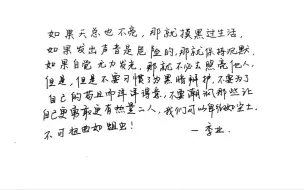 如果天总也不亮，那就摸黑过生活，
如果发出声音是危险的，那就保持沉默，
如果自觉无力发光，那就不必去照亮他人，
但是，但是不要习惯了为黑暗辩护，不要为了
自己的苟且而洋洋得意，不要嘲讽那些让
自己更勇敢更有热量之人，我们可以卑微如尘土，
不可扭曲如蛆虫！ 一李业.